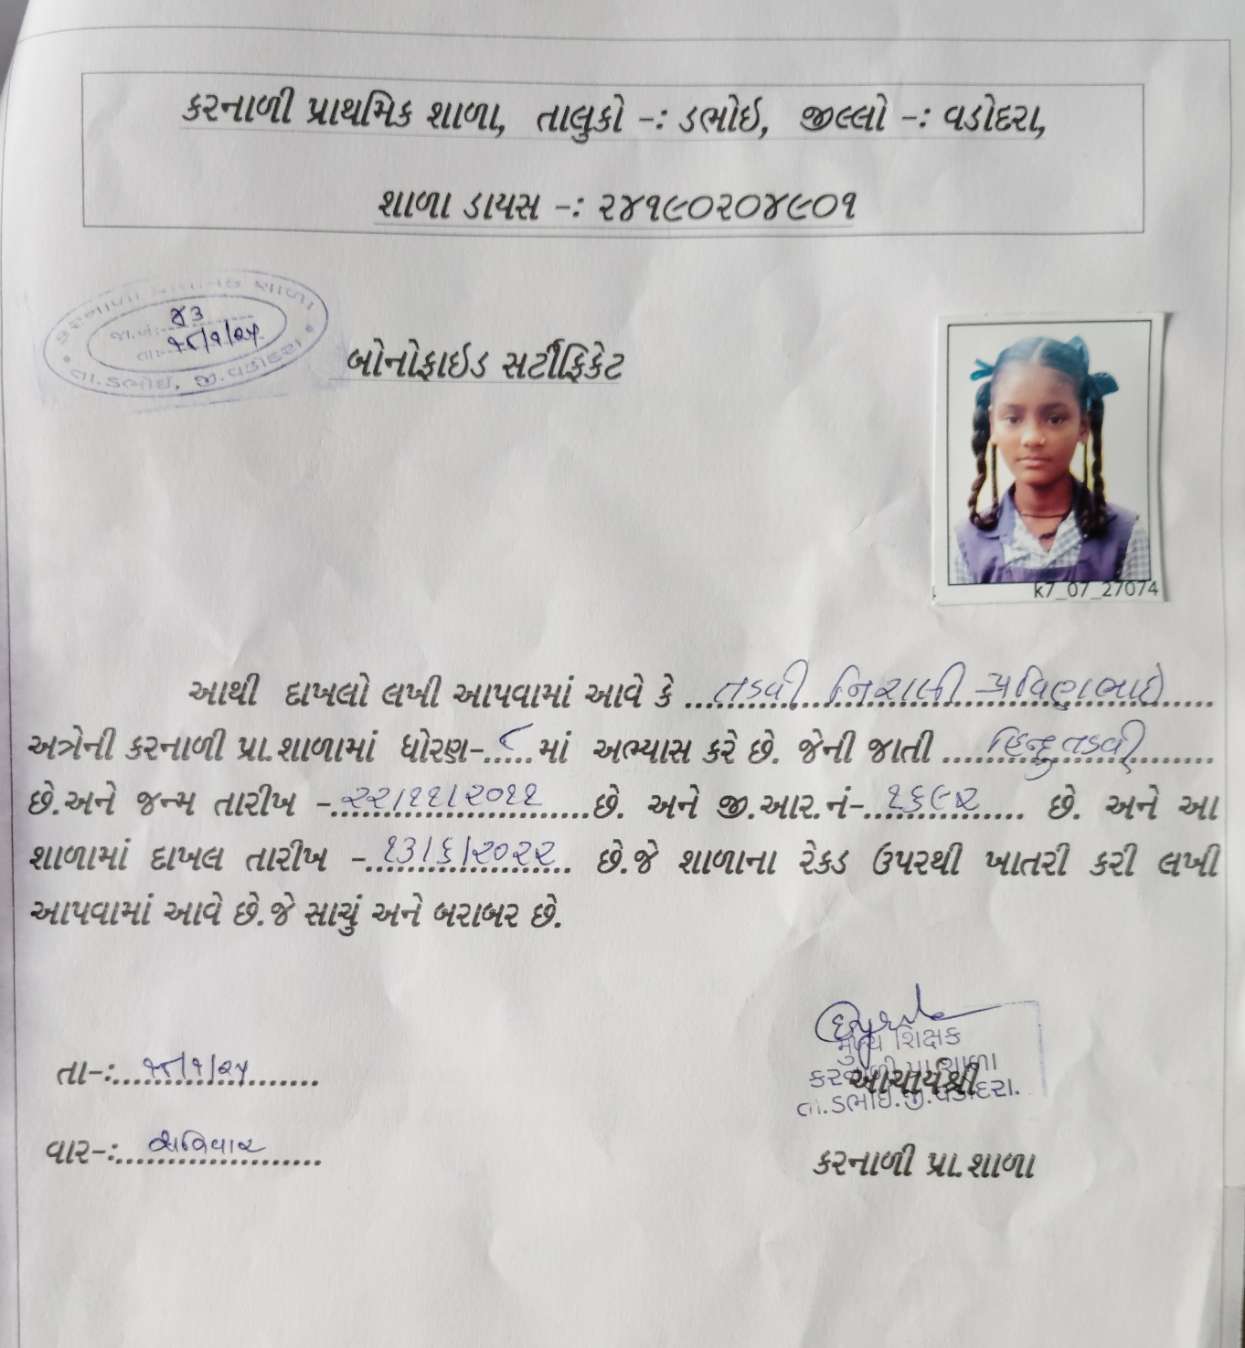 કરનાળી પ્રાથમિક શાળા, તાલુકો -: ડભોઇ, જીલ્લો -: વડોદરા,
શાળા ડાયસ -: ૨૪૧૯૦૨૦૪૯૦૧
કરનાળી પ્રાથમિક શાળા
જા.નં. ૪૩
તા. ૧૮/૧/૨૫
તા.ડભોઇ, જી.વડોદરા
બોનોફાઇડ સર્ટીફિકેટ
k7_07_27074
આથી દાખલો લખી આપવામાં આવે કે ...તડવી નિરાલી પ્રવિણભાઇ......
અત્રેની કરનાળી પ્રા.શાળામાં ધોરણ-..૮..માં અભ્યાસ કરે છે. જેની જાતી ....હિન્દુ તડવી......
છે.અને જન્મ તારીખ -..૨૨/૧૧/૨૦૧૧......છે. અને જી.આર.નં-...૧૬૯૨...... છે. અને આ
શાળામાં દાખલ તારીખ -..૧૩/૬/૨૦૨૨.. છે.જે શાળાના રેકડ ઉપરથી ખાતરી કરી લખી
આપવામાં આવે છે.જે સાચું અને બરાબર છે.
મુખ્ય શિક્ષક
કરનાળી પ્રા.શાળા
આચાર્યશ્રી
તા.ડભોઇ.જી.વડોદરા.
તા-:...૧૮/૧/૨૫......
વાર-:...શનિવાર......
કરનાળી પ્રા.શાળા